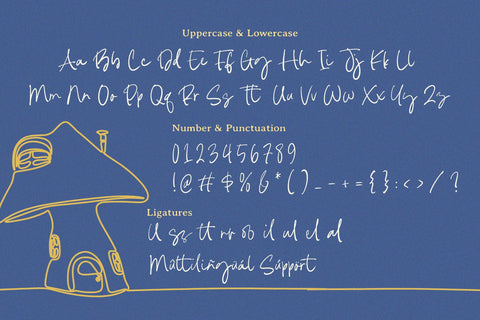 Uppercase & Lowercase
Aa Bb Cc Dd Ee Ff Gg Hh Ii Jj Kk Ll
Mm Nn Oo Pp Qq Rr Ss Tt Uu Vv Ww Xx Yy Zz
Number & Punctuation
0123456789
!@#$%&*()_-+={}:<>/?
Ligatures
ll ss tt rr ob il ul el al
Multilingual Support